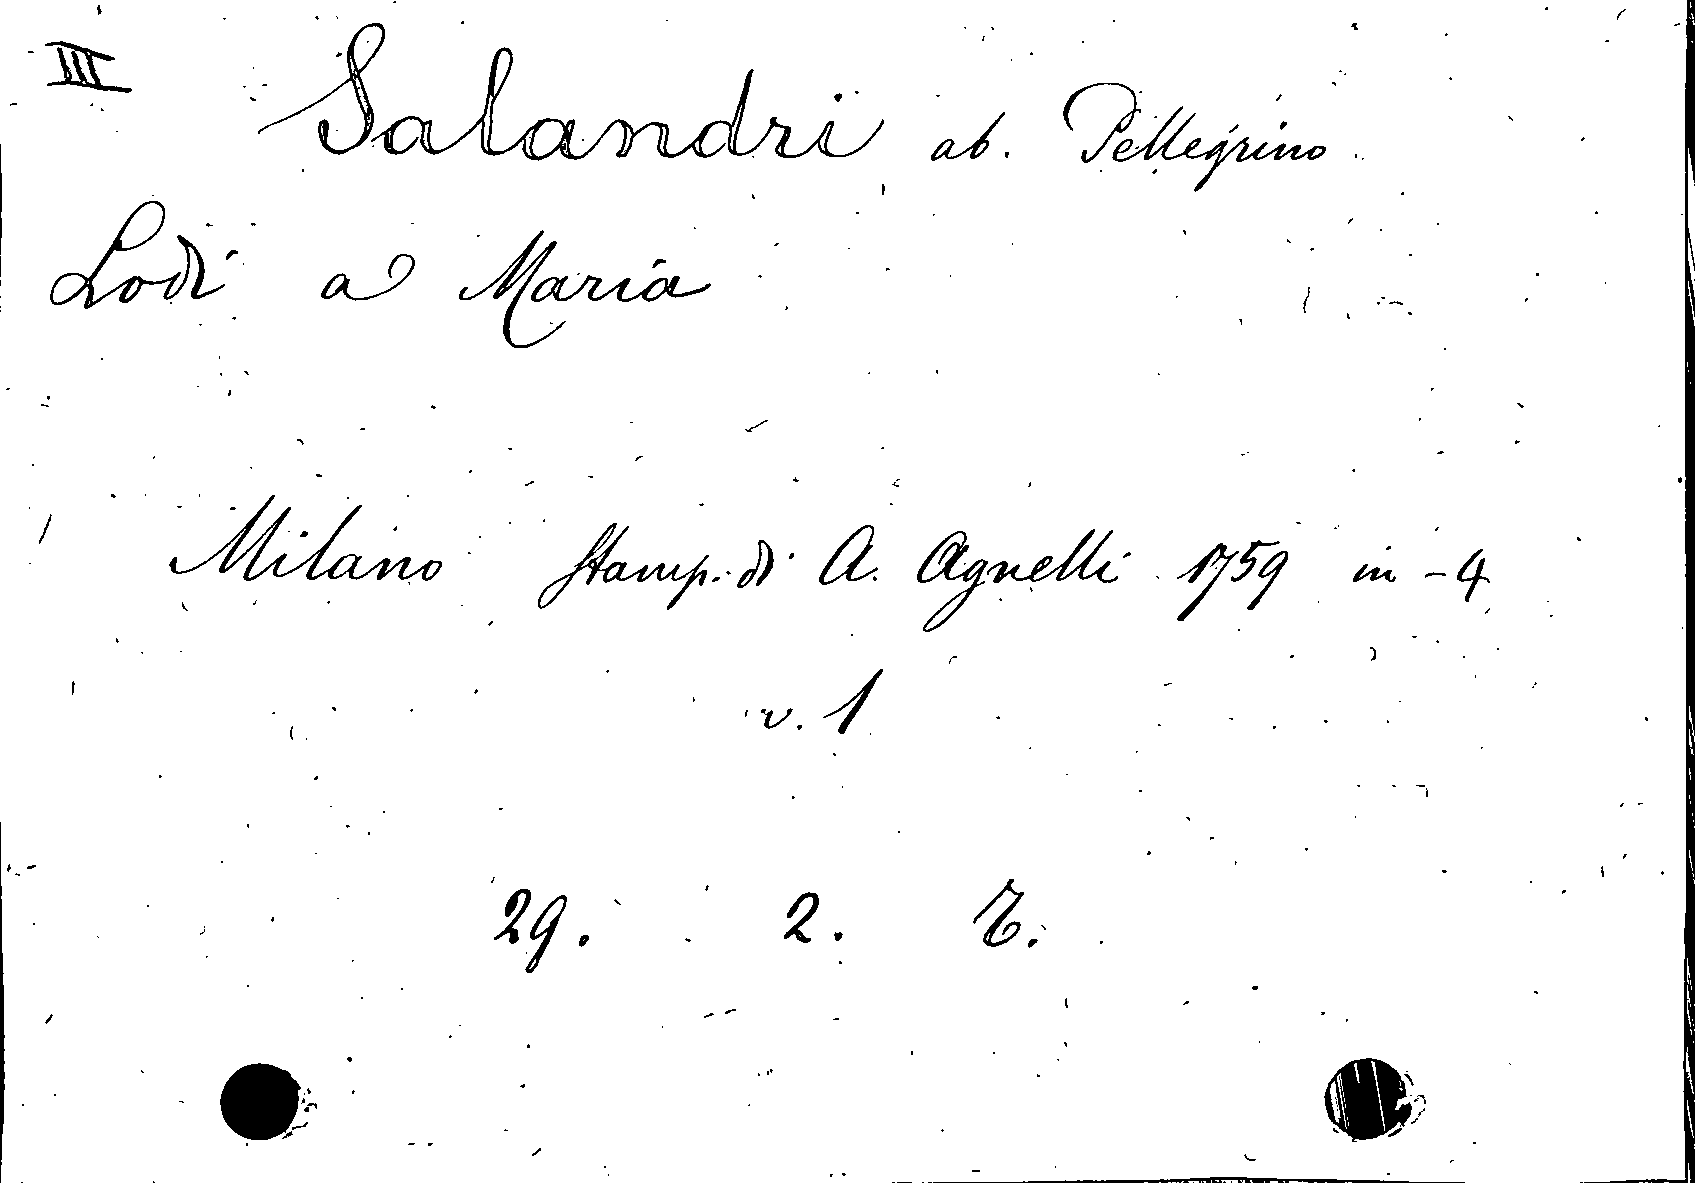 III
Salandri ab. Pellegrino
Lodi a Maria
Milano Stamp. di A. Agnelli 1759 in -4
v. 1
29. 2.